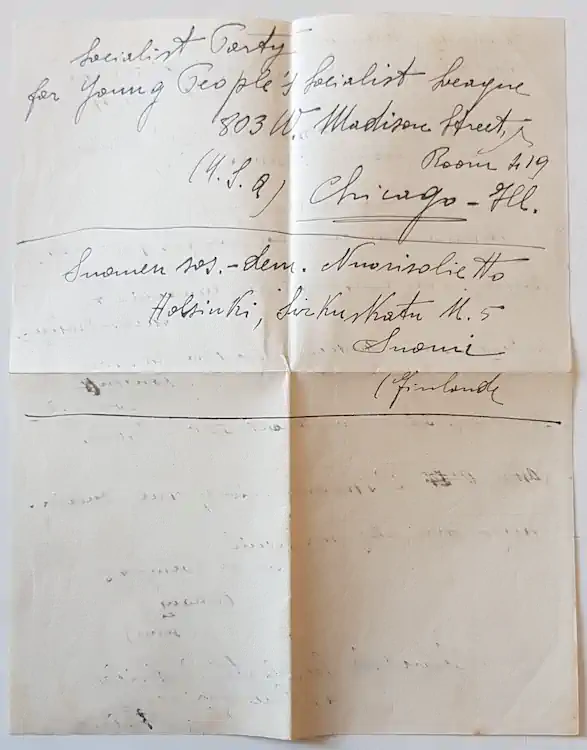 Socialist Party
for Young People's Socialist League
803 W. Madison Street,
Room 419
(U.S.A) Chicago - Ill.
Suomen sos.-dem. Nuorisoliitto
Helsinki, Sirkuskatu N. 5
Suomi
(Finlande